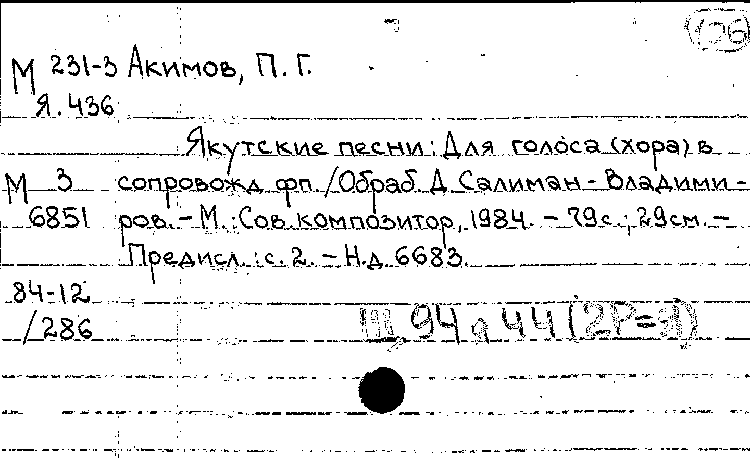 126
М 231-3 Акимов, П. Г.
Я. 436
Якутские песни: Для голоса (хора) в
М 3 сопровожд фп. / Обраб. Д. Салиман-Владими-
6851 ров. - М.: Сов. композитор, 1984. - 79 с.; 29 см. -
Предисл.: с. 2. - Н.д. 6683.
84-12
/286
Щ 94 я 44 (2Р=Я)